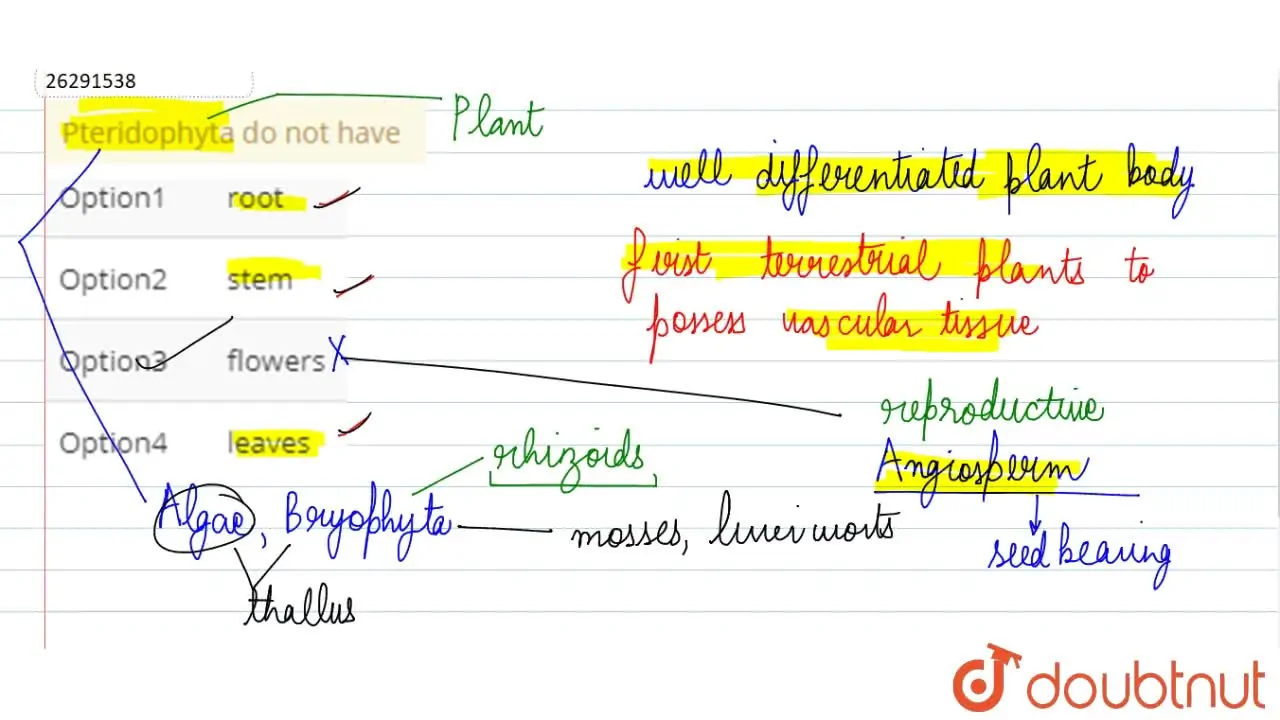 26291538
Pteridophyta do not have
Plant
Option1 root
Option2 stem
Option3 flowers X
Option4 leaves
well differentiated plant body
first terrestrial plants to
possess vascular tissue
reproductive
Angiosperm
seed bearing
rhizoids
Algae, Bryophyta
mosses, liverworts
thallus
doubtnut